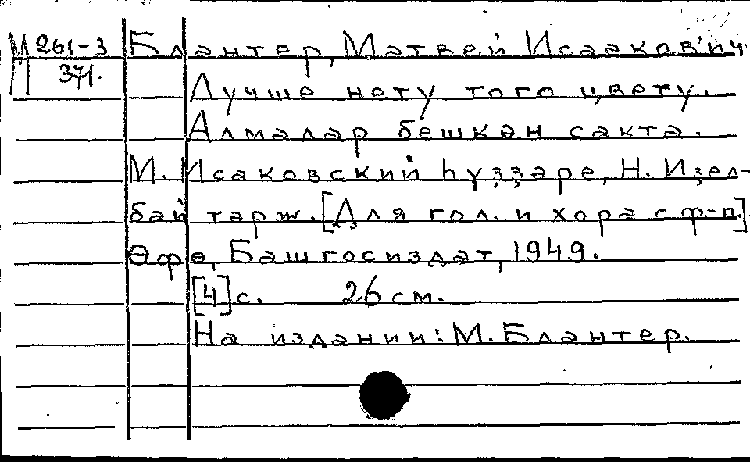 М 261-3 Блантер, Матвей Исаакович
П 371. Лучше нету того цвету.
Алмалар бешкан сакта.
М. Исаковский һүҙҙәре, Н. Иҙел-
бай тәрж. [Для гол. и хора с ф-п.]
Өфө, Башгосиздат, 1949.
[4] с. 26 см.
На издании: М. Блантер.